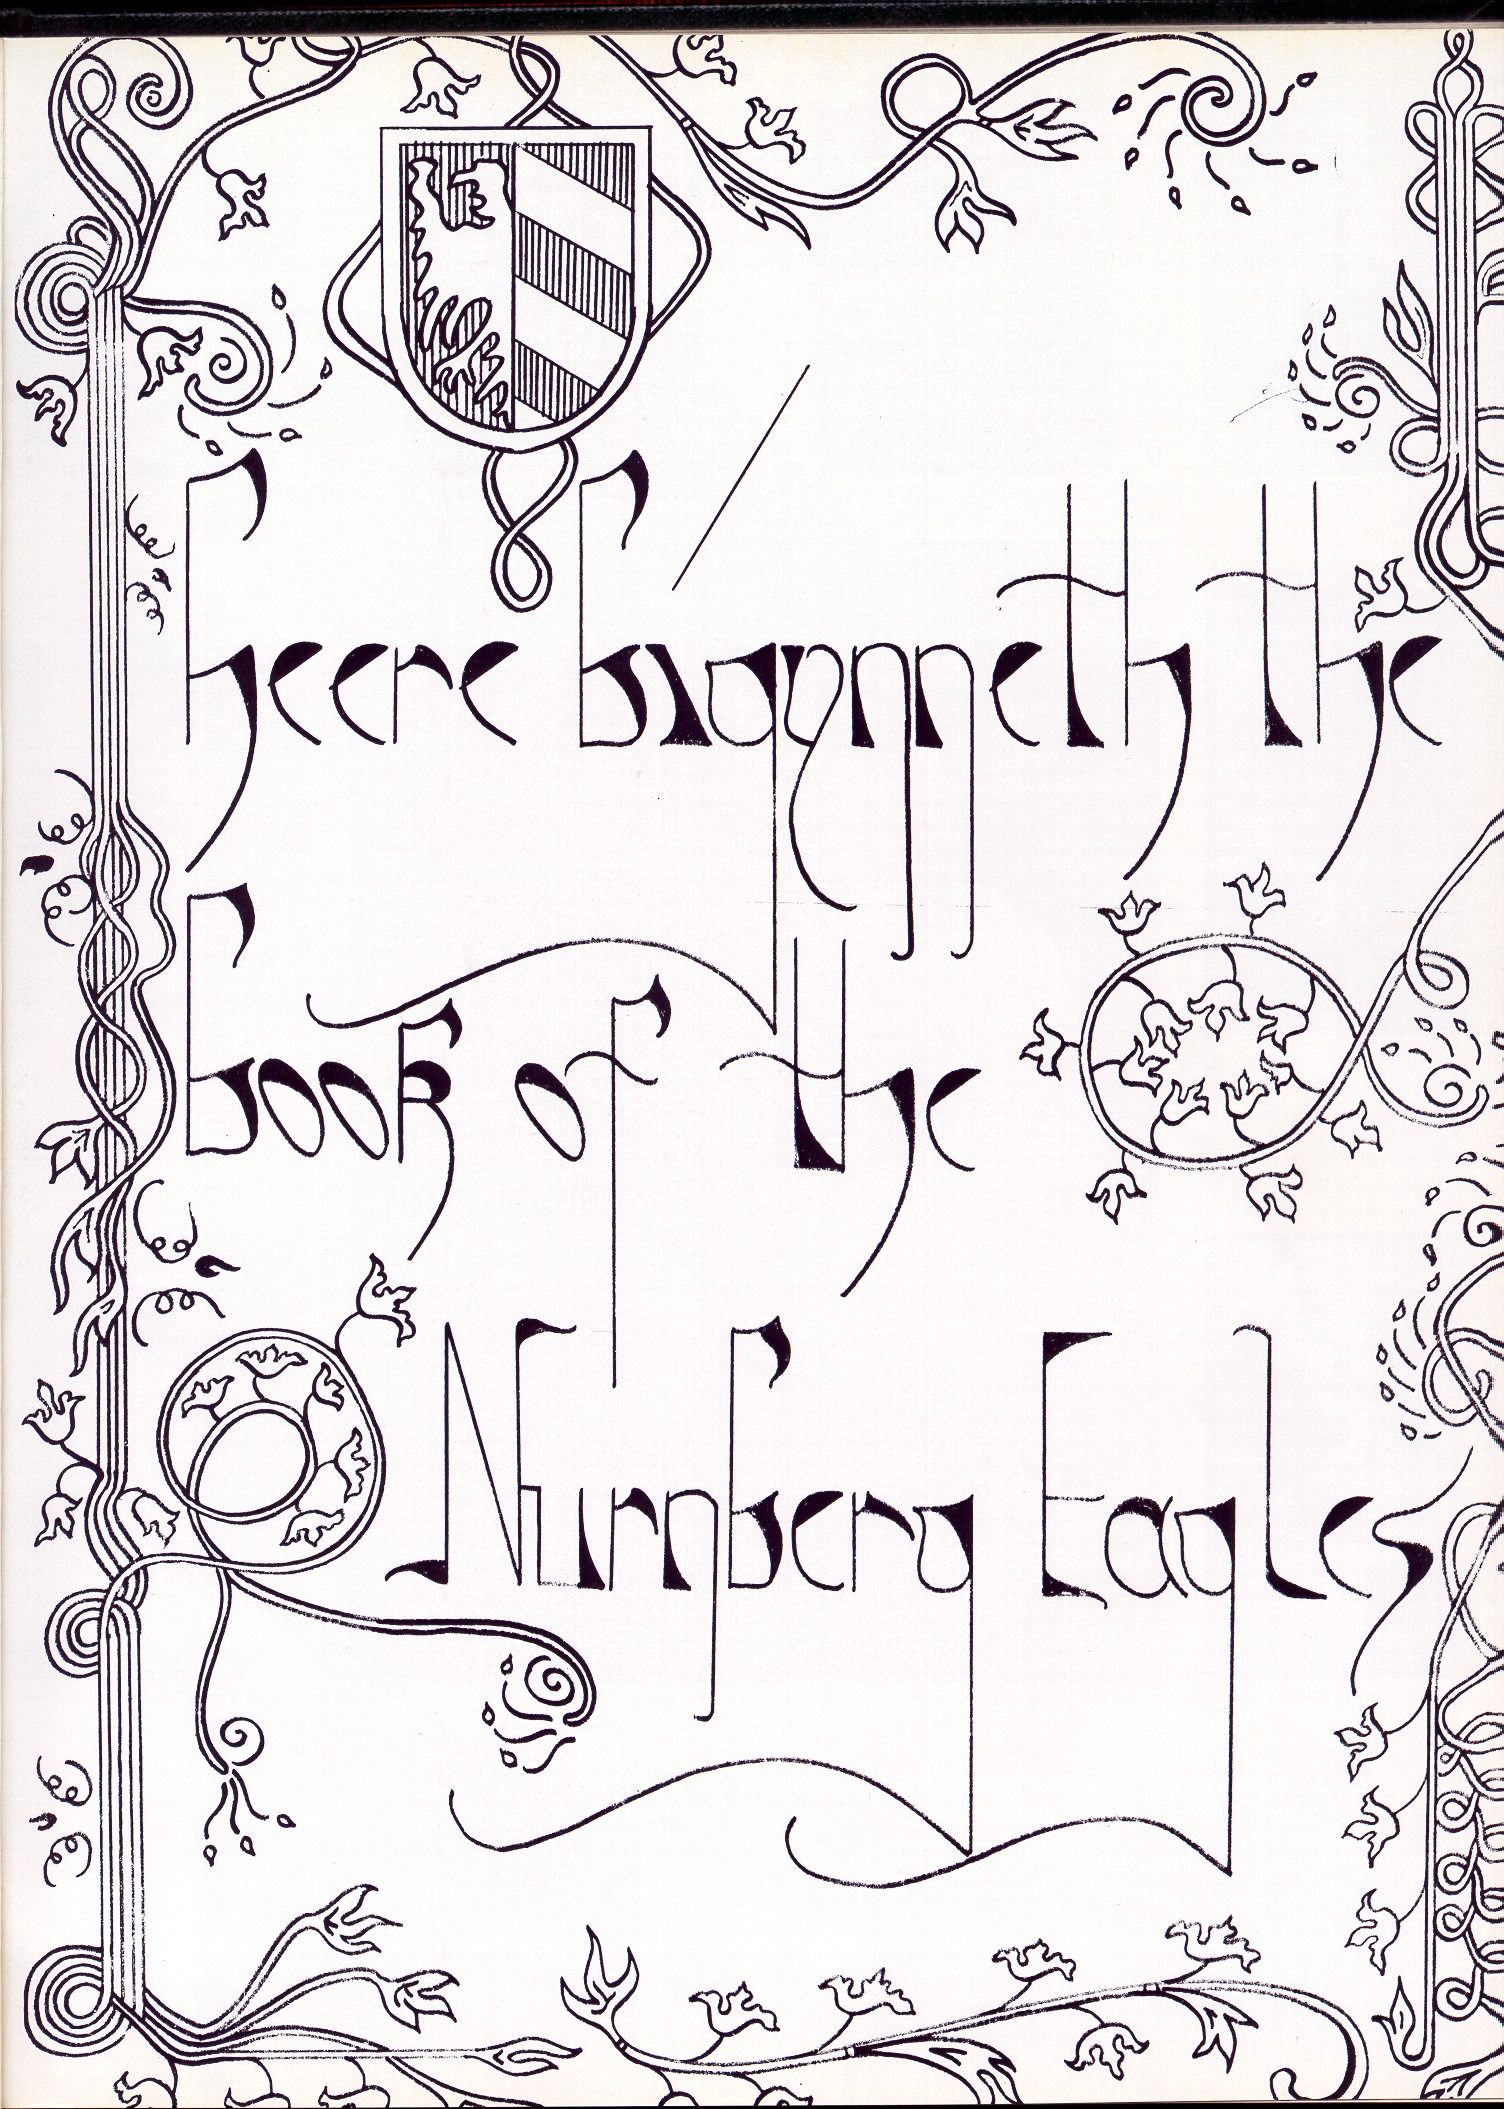 heere bigynneth the
book of the
Nurnberg Eagles